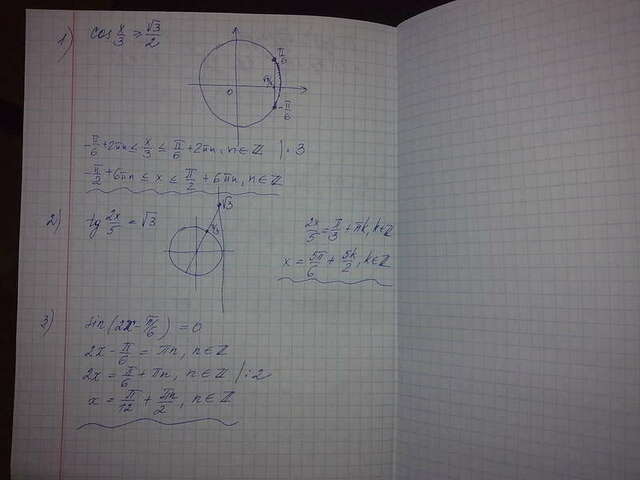 1) cos x/3 ≥ √3/2
π/6
√3/2
0
-π/6
-π/6 + 2πn ≤ x/3 ≤ π/6 + 2πn, n∈ℤ | · 3
-π/2 + 6πn ≤ x ≤ π/2 + 6πn, n∈ℤ
2) tg 2x/5 = √3
√3
π/3
2x/5 = π/3 + πk, k∈ℤ
x = 5π/6 + 5k/2, k∈ℤ
3) sin(2x - π/6) = 0
2x - π/6 = πn, n∈ℤ
2x = π/6 + πn, n∈ℤ | :2
x = π/12 + πn/2, n∈ℤ